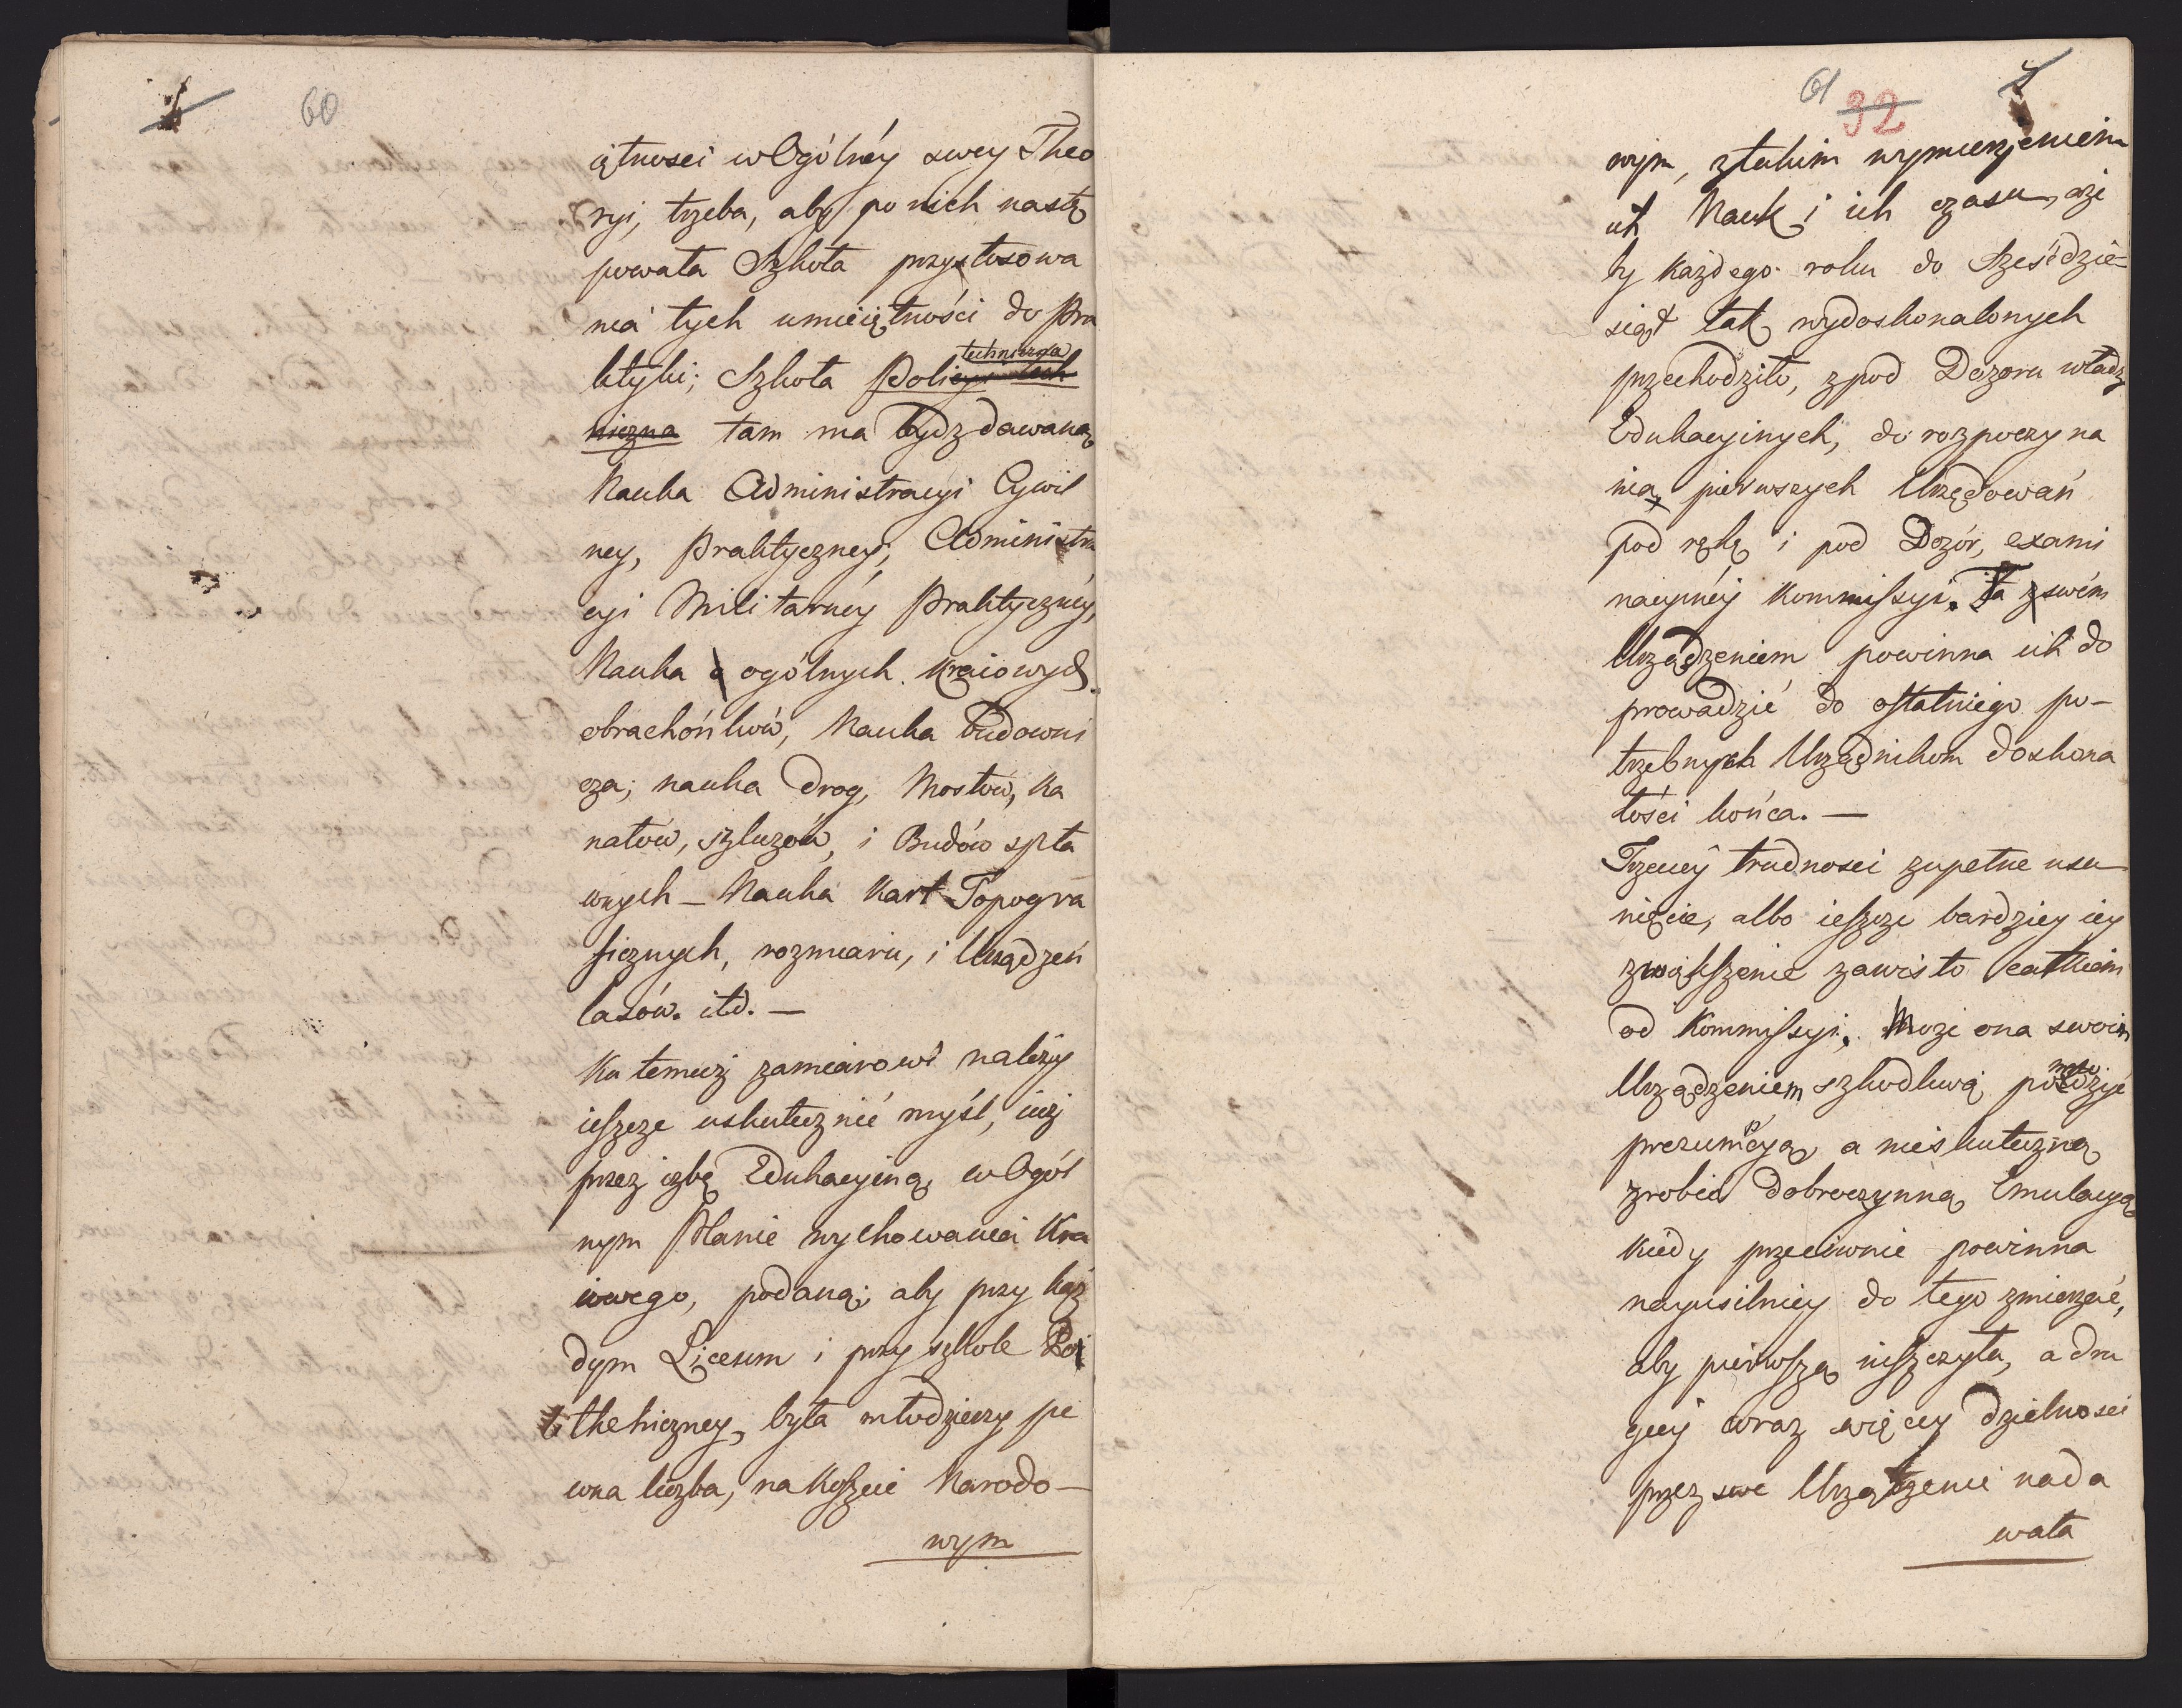 60
iętnosci w Ogólnéy swey Theo
ryi, trzeba, aby po nich nastę
powała Szkoła przystosowa
nia tych umieiętności do Pra
ktyki; Szkoła Policyi tech
techniczna
niczna tam ma bydz dawaną
Nauka Administracyi Cywil
ney, Praktyczney, Administra
cyi Militarnéy Praktycznéy,
Nauka o ogólnych kraiowych
obrachónków, Nauka budowni
cza, nauka Drog, Mostów, Ka
nałów, szluzów, i Budów spła
wnych – Nauka Kart Topogra
ficznych, rozmiaru, i Urządzeń
lasów. itd. –
Ku temuż zamiarowi należy
ieszcze uskutecznić myśl, iuż
przez izbę Edukacyiną, w Ogól
nym Planie wychowania Kra
iowego, podaną; aby przy każ
dym Liceum i przy szkole Po
li thehniczney, była młodzieży pe
wna liczba, na koszcie Narodo–
wym
61
32
wym, z takim wymierzeniem
ich Nauk i ich czasu, aże
by każdego roku do Sześćdzie–
siąt tak wydoskonalonych
przechodziło, z pod Dozoru władz
Edukacyinych, do rozpoczyna
nia pierwszych Urzędowań
pod ręką i pod Dozór, exami
nacyinéy Kommissyi. Ta z swém
Urządzeniem powinna ich do
prowadzić do ostatniego po–
trzebnych Urzędnikom doskona
łości końca. –
Trzeciéy trudnosci zupełne usu
nięcie, albo ieszcze bardziey iéy
zwiększenie zawisło całkiem
od Kommissyi. Może ona swoim
Urządzeniem szkodliwą pomno
żyć
prezumpcyą, a nieskuteczną
zrobić dobroczynną Emulacyą
kiedy przeciwnie powinna
nayusilniey do tego zmierzać,
aby pierwszą niszczyła, a dru
giey coraz więcey dzielnosci
przez swe Urządzenie nada
wała